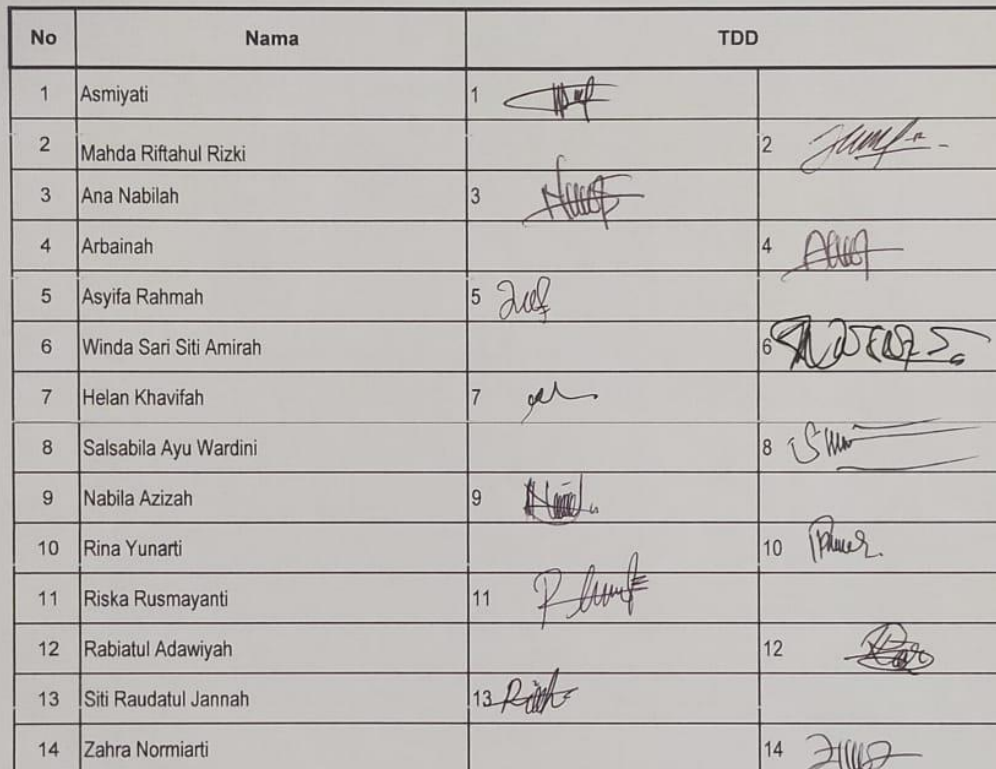 No Nama TDD
1 Asmiyati 1
2 Mahda Riftahul Rizki 2
3 Ana Nabilah 3
4 Arbainah 4
5 Asyifa Rahmah 5
6 Winda Sari Siti Amirah 6
7 Helan Khavifah 7
8 Salsabila Ayu Wardini 8
9 Nabila Azizah 9
10 Rina Yunarti 10
11 Riska Rusmayanti 11
12 Rabiatul Adawiyah 12
13 Siti Raudatul Jannah 13
14 Zahra Normiarti 14